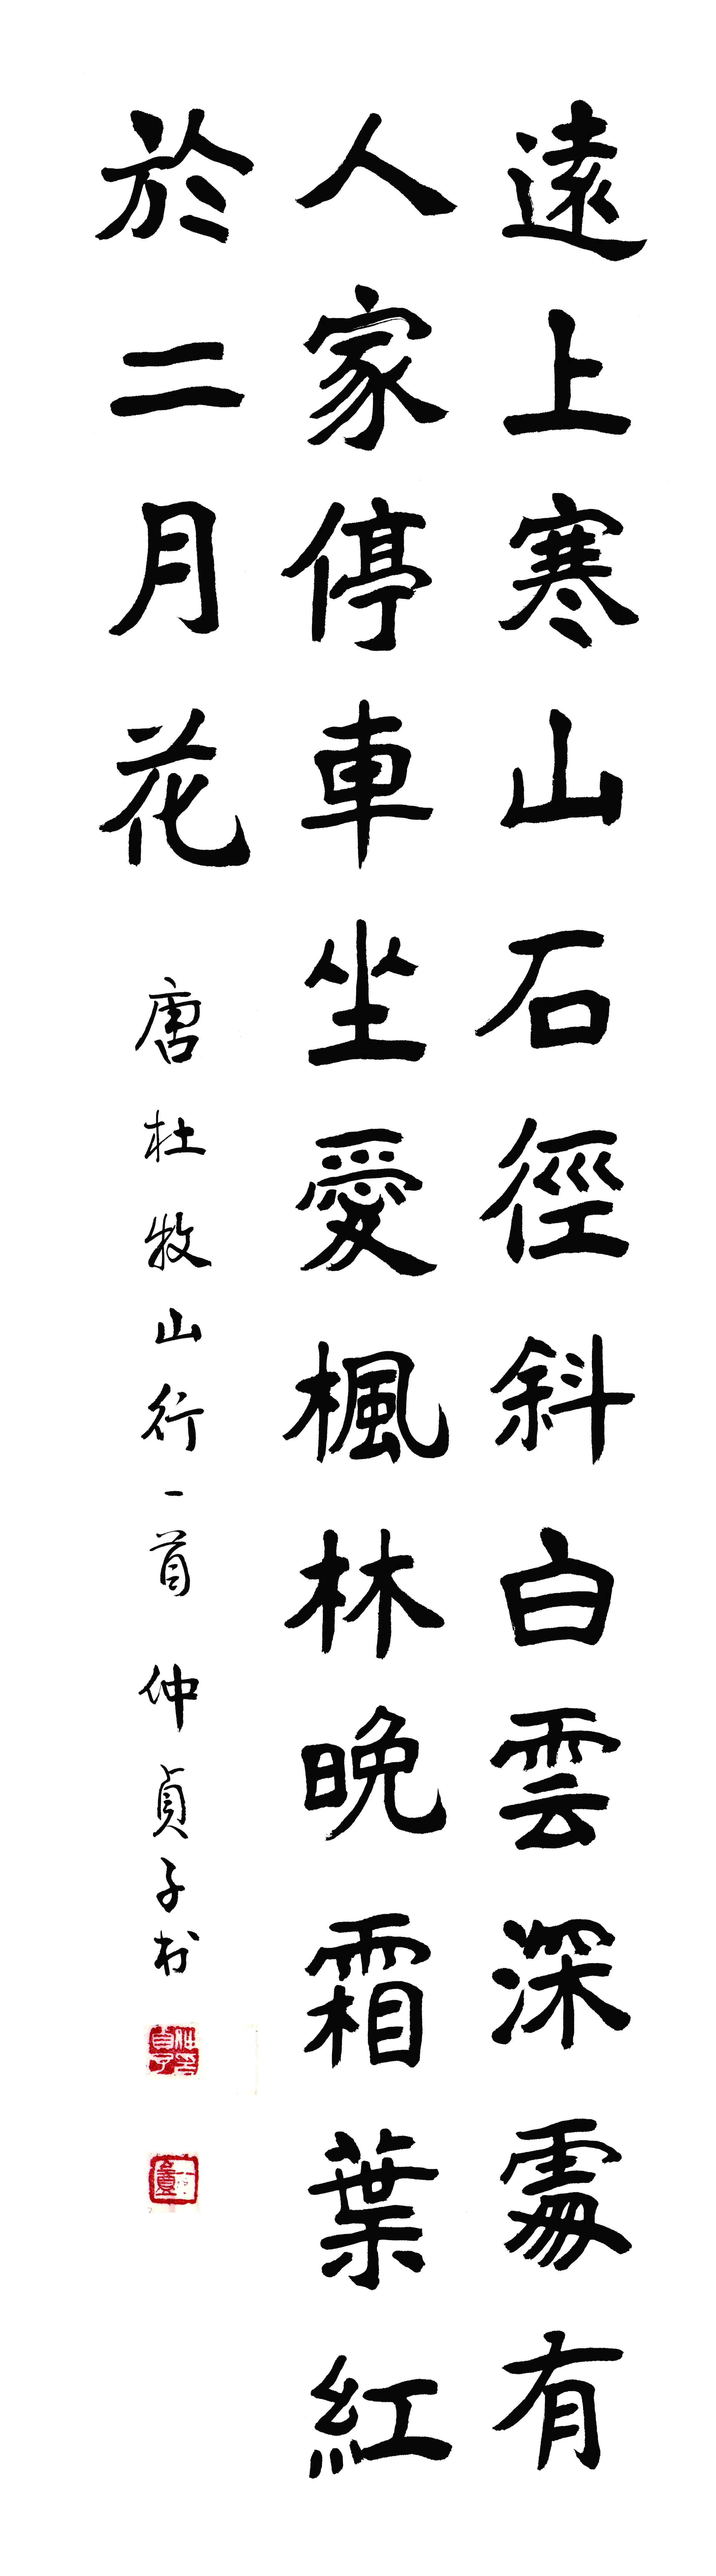 遠上寒山石徑斜白雲深處有
人家停車坐愛楓林晚霜葉紅
於二月花
唐杜牧山行一首 仲貞子書